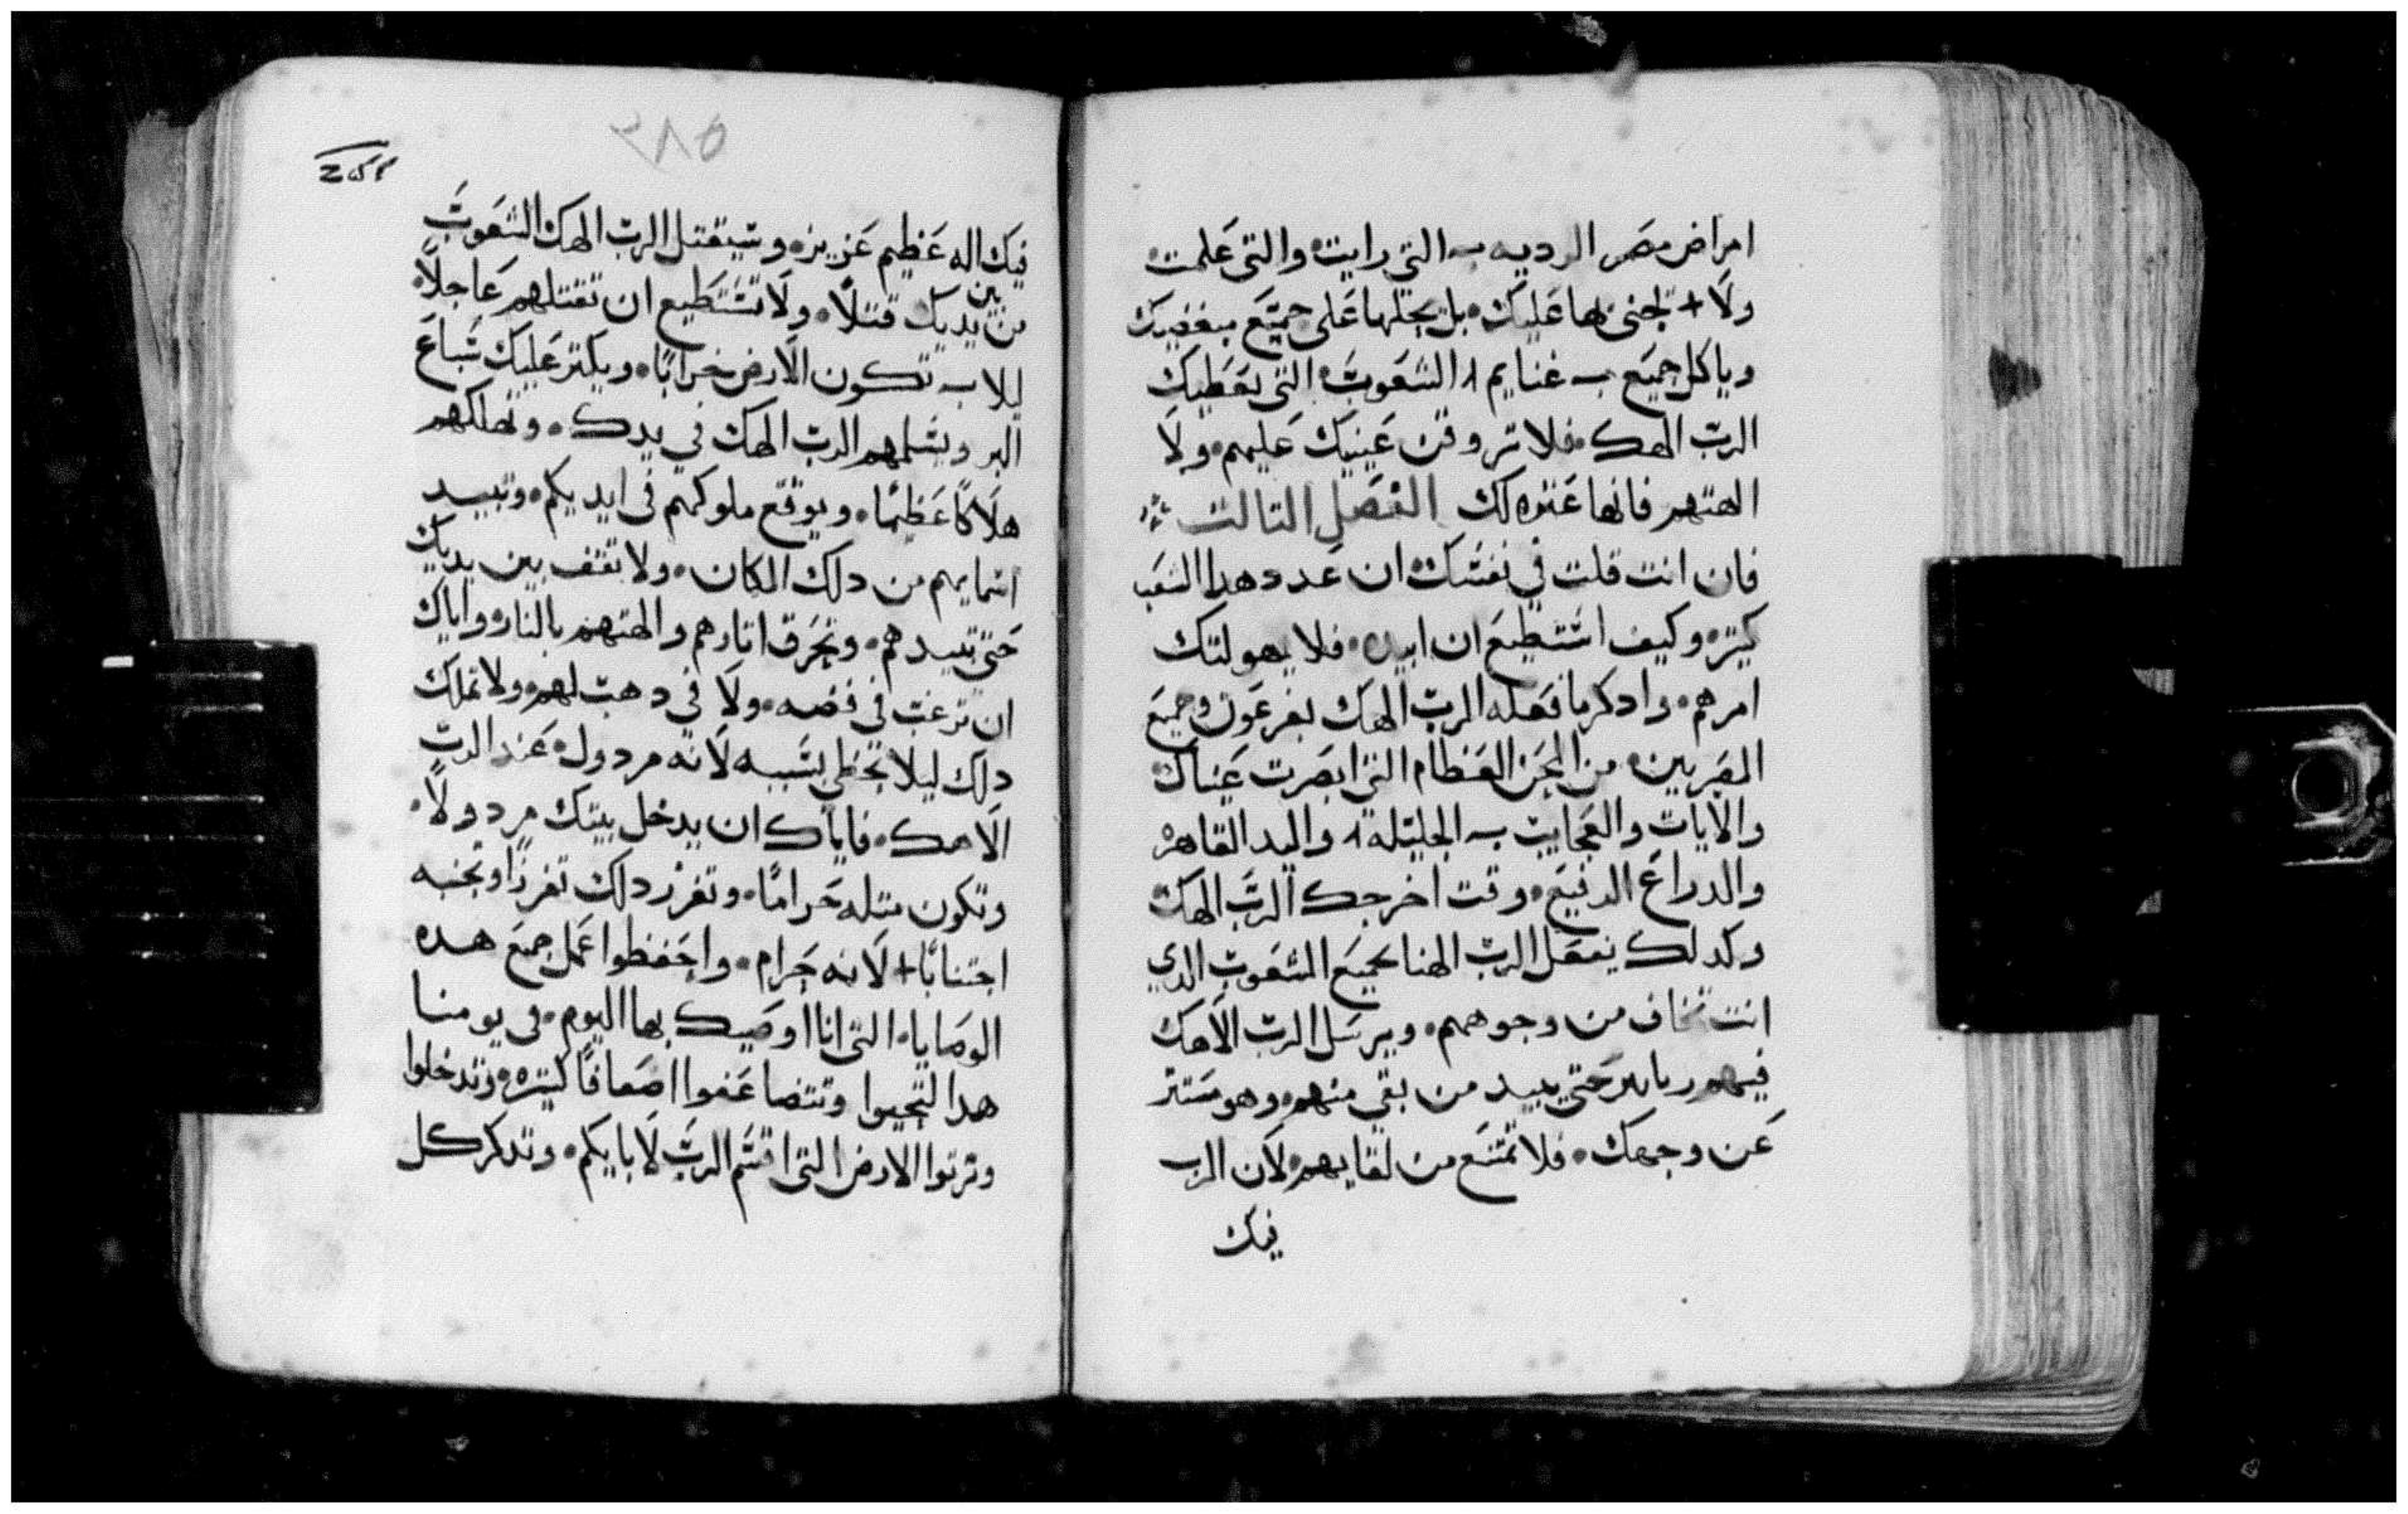 امراض مصر الرديه التي رايت والتي علمت
ولا + تجني بها عليك بل يجعلها على جميع مبغضيك
وياكل جميع غنايم الشعوب التي يعطيك
الرب الهك فلا تروفن عينيك عليهم ولا
الهتهم فانها عثره لك الفصل التالت
فان انت قلت في نفسك ان عدد هدا الشعب
كتير وكيف استطيع ان ابيده فلا يهولنك
امرهم وادكر ما فعله الرب الهك بفرعون وجميع
المصريين من المحن العظام التي ابصرت عيناك
والايات والعجايب الجليله واليد القاهره
والدراع الرفيع وقت اخرجك الرب الهك
وكدلك يفعل الرب الهنا بجميع الشعوب الدي
انت تخاف من وجوههم ويرسل الرب الاهك
فيهم حتي يبيد من بقي منهم وهو مستتر
عن وجهك فلا تمتنع من لقايهم لان الرب
فيك
٢٨٥
فيك اله عظيم عزيز وسيقتل الرب الهك الشعوب
من بين يديك قتلًا ولا تستطيع ان تقتلهم عاجلًا
ليلا تكون الارض خرابًا ويكتر عليك سباع
البر ويسلمهم الرب الهك في يدك وتهلكهم
هلاكًا عظيمًا ويوقع ملوكهم في ايديكم وتبيد
اسمايهم من دلك المكان ولا تقف بين يديك
حتى تبيدهم وتحرق اتارهم والهتهم بالنار واياك
ان ترغب في فضه ولا في دهب لهم ولا تملك
دلك ليلا تخطي بسببه لانه مردول عند الرب
الاهك فاياك ان يدخل بيتك مردولًا
وتكون متله حرامًا وتفرز دلك تفرزا وتجنبه
اجتنابًا + لانه حرام واحفظوا عمل جميع هده
الوصايا التي انا اوصيك بها اليوم في يومنا
هدا لتحيوا وتتضاعفوا اضعافًا كتيره وتدخلوا
وترتوا الارض التي اقسم الرب لابايكم وتدكر كل